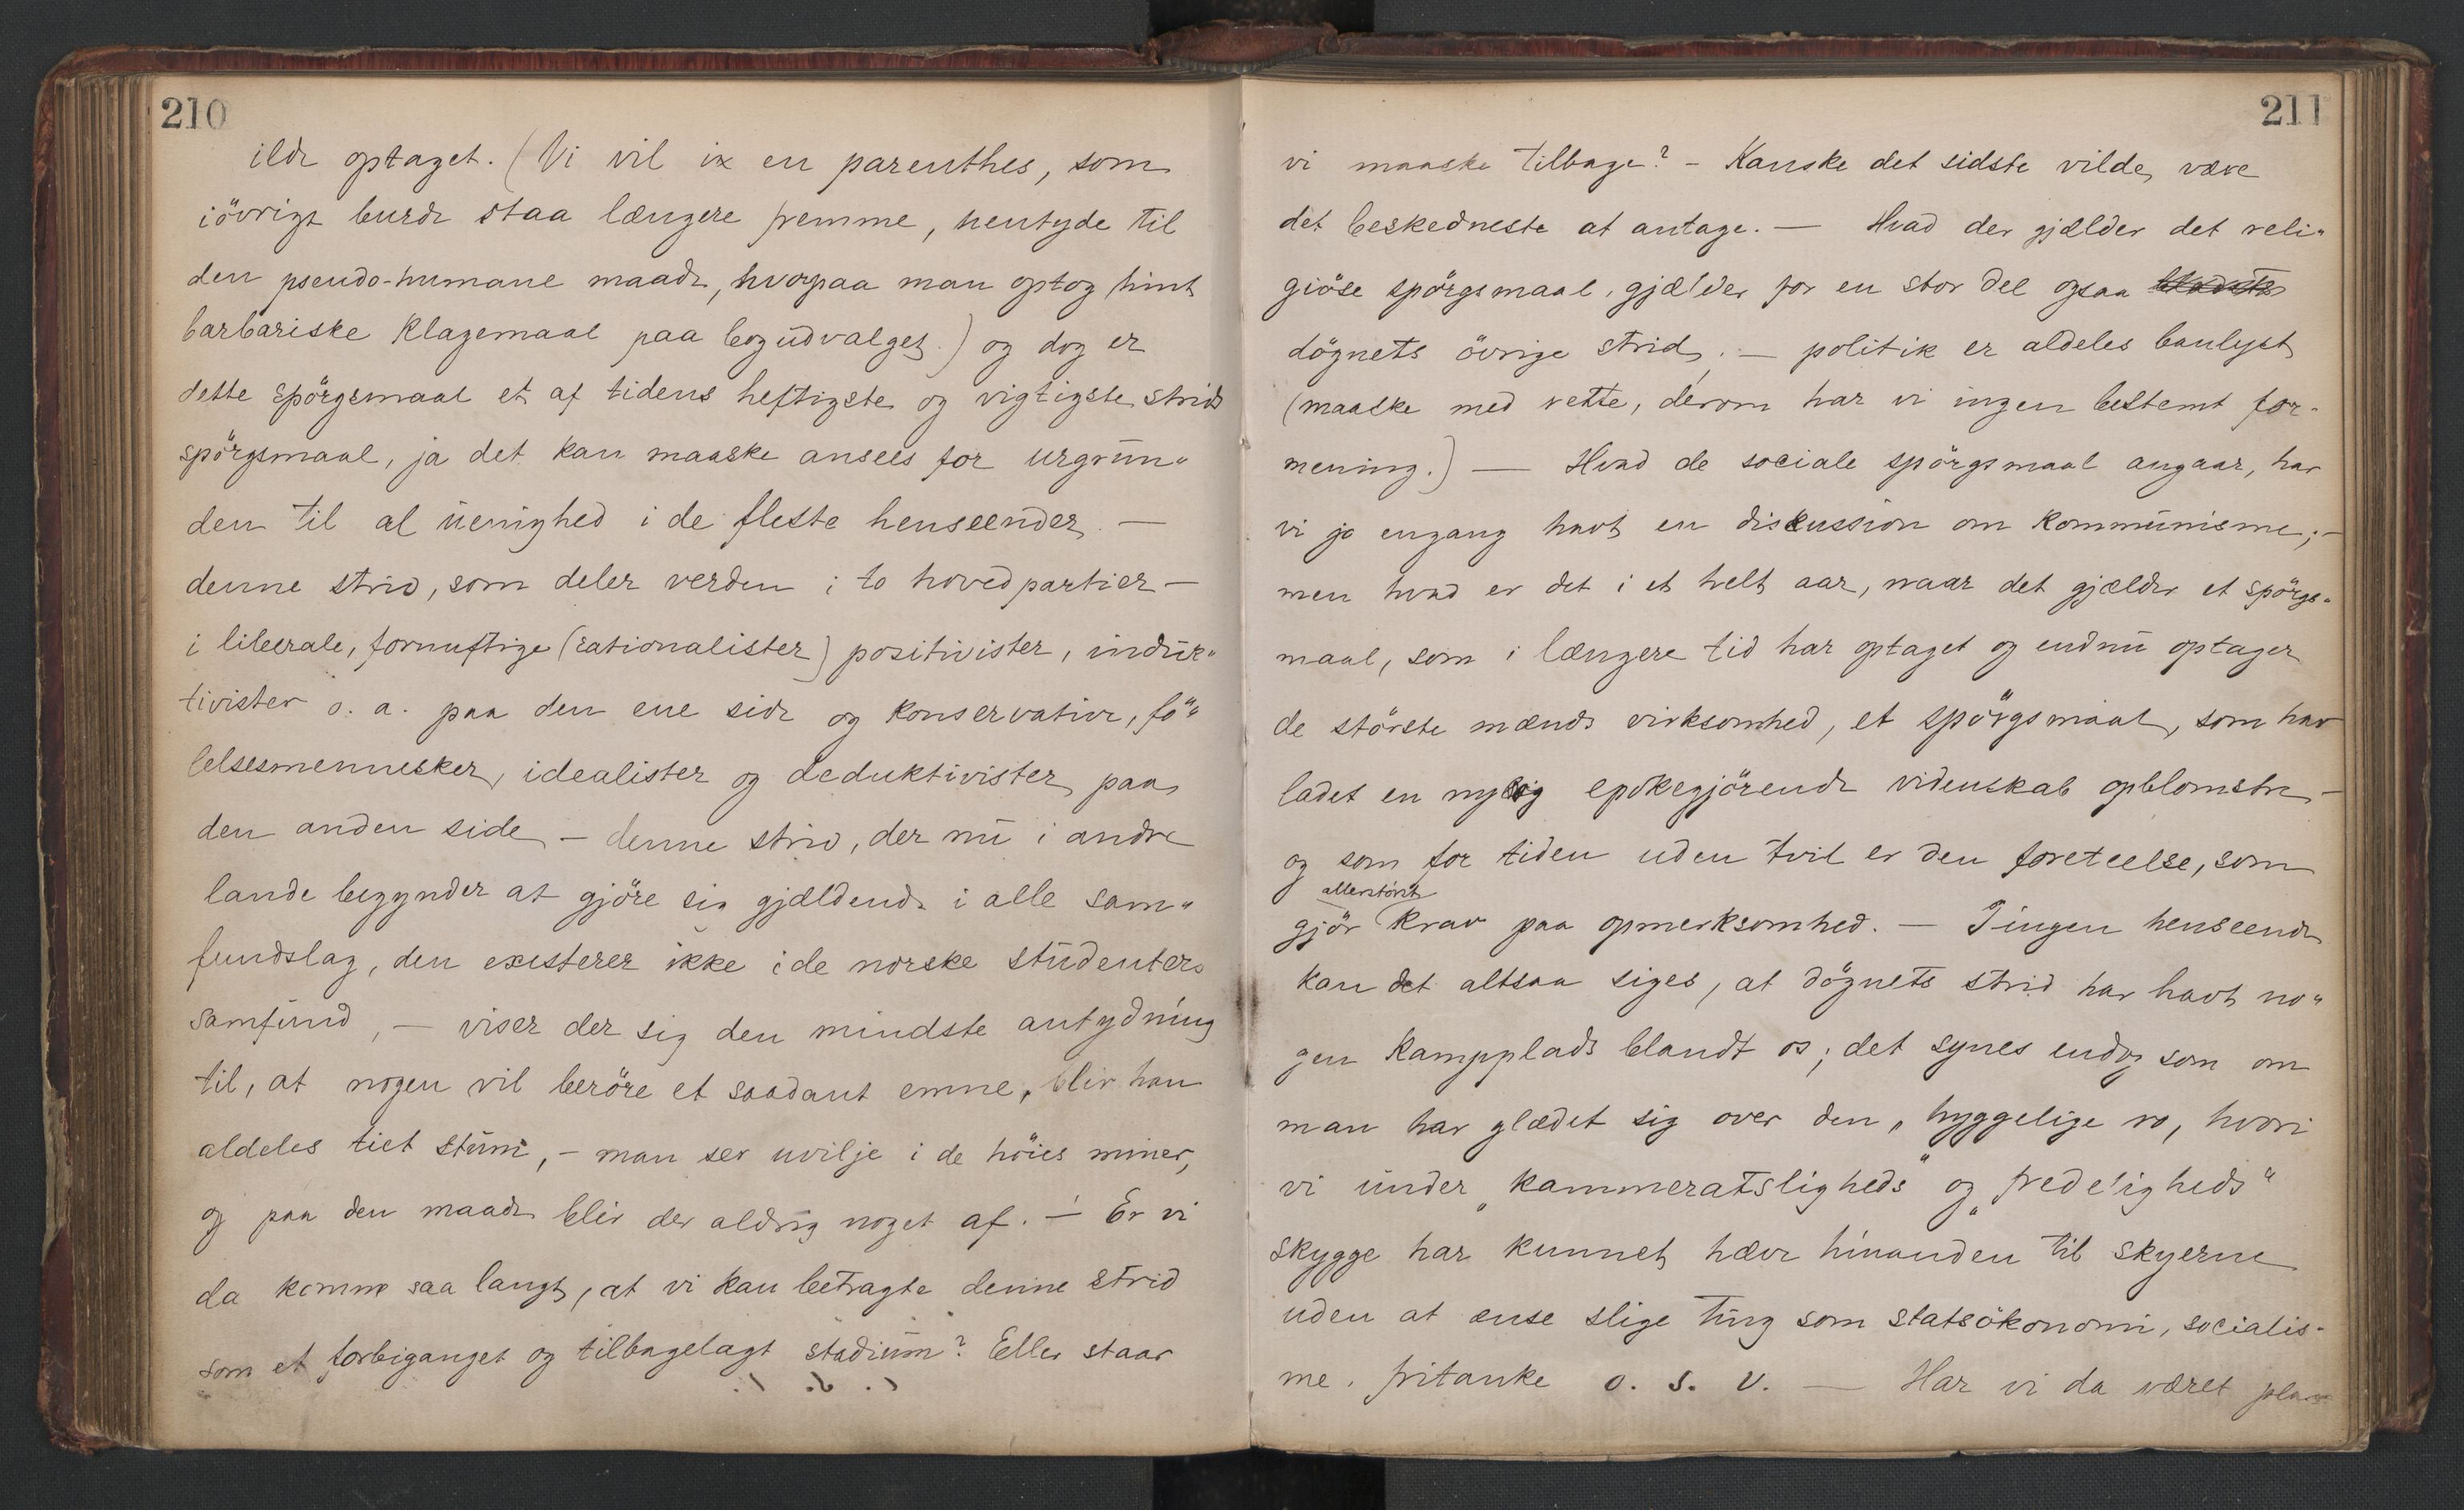 210
ilde optaget. (Vi vil i en parenthes, som
iövrigt burde staa længere fremme, hentyde til
den pseudo-humane maade, hvorpaa man optog hint
barbariske klagemaal paa bogudvalget.) og dog er
dette spörgsmaal et af tidens heftigste og vigtigste strids
spörgsmaal, ja det kan maaske ansees for urgrun„
den til al uenighed i de fleste henseender. —
denne strid, som deler verden i to hovedpartier —
i liberale, fornuftige (rationalister) positivister, induk„
tivister o. a. paa den ene side og konservative, fö„
lelsesmennesker, idealister og deduktivister paa
den anden side — denne strid, der nu i andre
lande begynder at gjöre sig gjældende i alle sam„
fundslag, den existerer ikke i de norske studenters
samfund, — viser der sig den mindste antydning
til, at nogen vil beröre et saadant emne, blir han
aldeles tiet stum, — man ser uvilje i de höies miner,
og paa den maade blir der aldrig noget af. — Er vi
da komne saa langt, at vi kan betragte denne strid
som et forbiganget og tilbagelagt stadium? Eller staar
211
vi maaske tilbage? — Kanske det sidste vilde være
det beskedneste at antage. — Hvad der gjælder det reli„
giöse spörgsmaal, gjælder for en stor del ogsaa
dögnets övrige strid; — politik er aldeles banlyst
(maaske med rette, dérom har vi ingen bestemt for-
mening.) — Hvad de sociale spörgsmaal angaar, har
vi jo engang havt en diskussion om kommunisme; —
men hvad er det i et helt aar, naar det gjælder et spörgs-
maal, som i længere tid har optaget og endnu optager
de störste mænds virksomhed, et spörgsmaal, som har
ladet en ny og epokegjörende videnskab opblomstre —
og som for tiden uden tvil er den foreteelse, som
allerstörst
gjör krav paa opmerksomhed. — I ingen henseende
kan det altsaa siges, at dögnets strid har havt no„
gen kampplads blandt os; det synes endog som om
man har glædet sig over den „hyggelige ro, hvori
vi under „kammeratsligheds" og „fredeligheds"
skygge har kunnet hæve hinanden til skyerne
uden at ænse slige ting som statsökonomi, socialis-
me, fritanke o. s. v. — Har vi da været